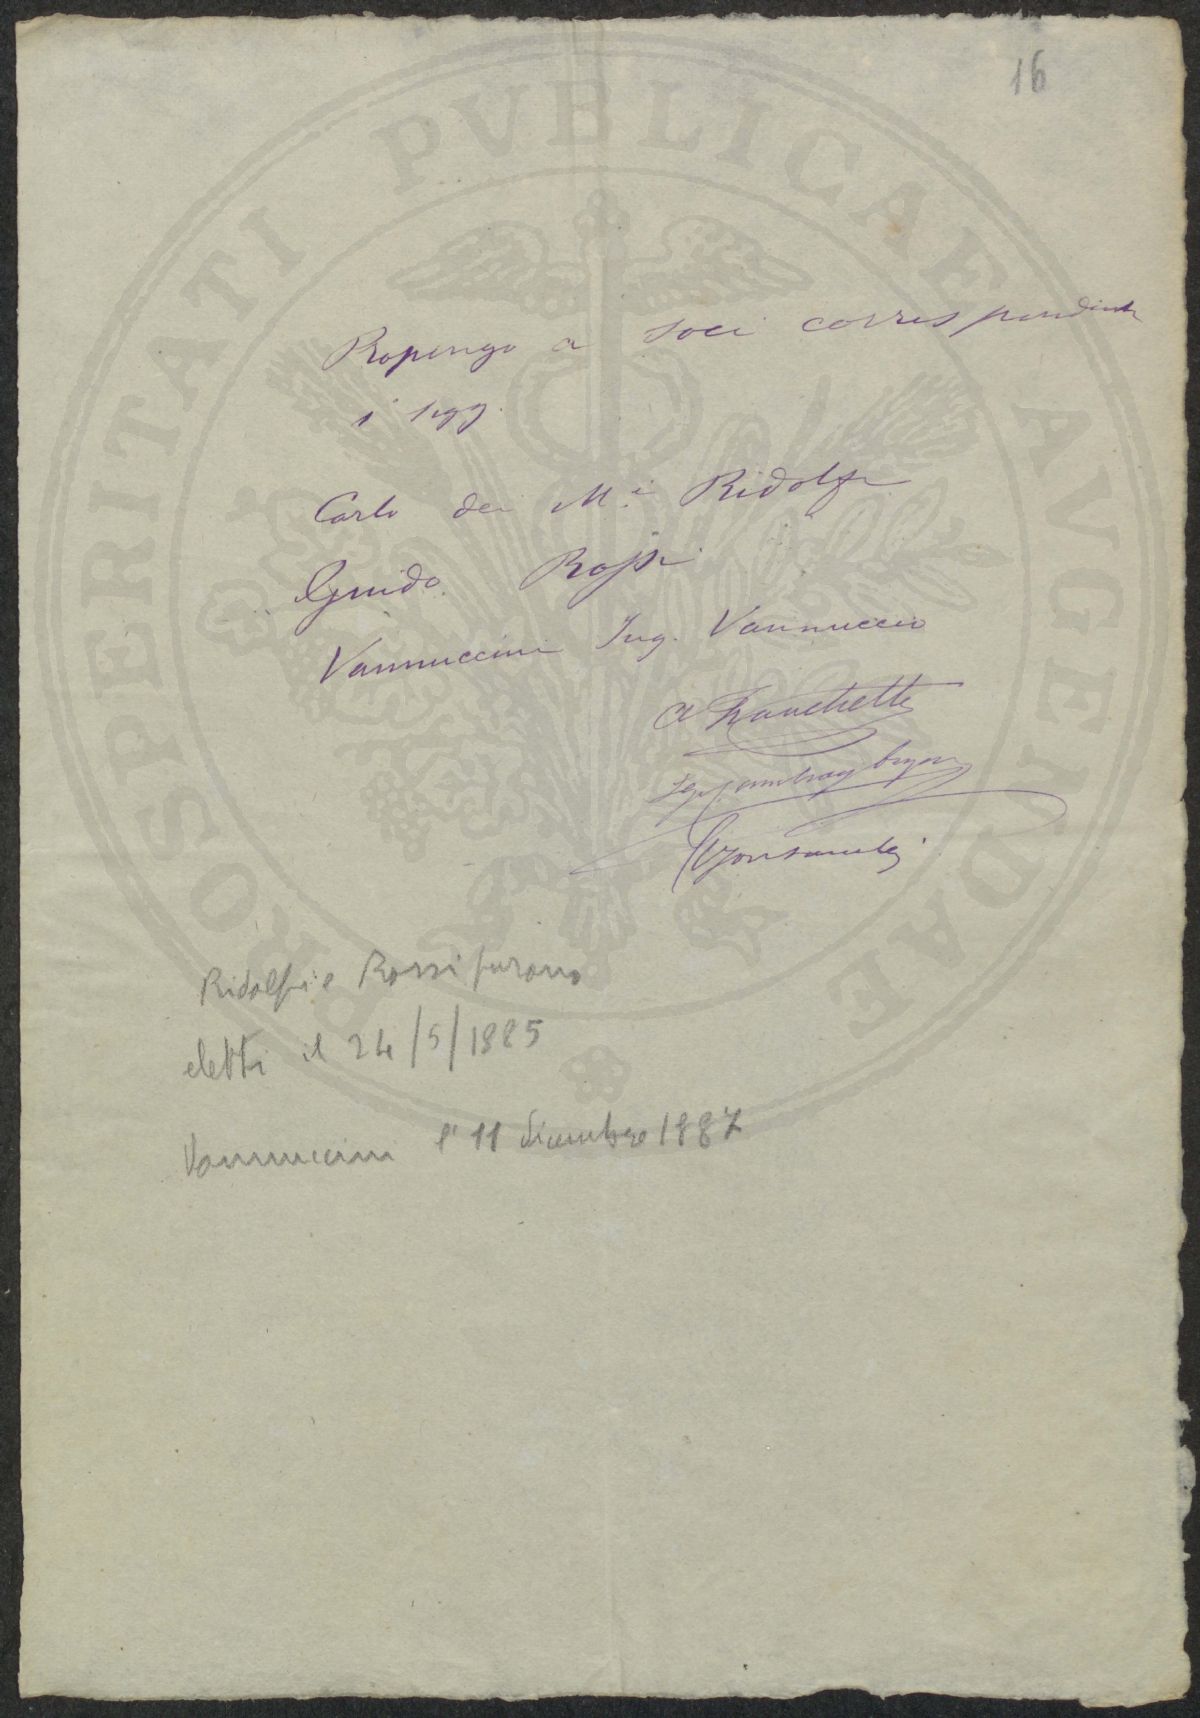 16
Propongo a soci correspondenti
i Sigg.
Carlo dei M.i Ridolfi
Guido Rossi
Vannuccini Ing. Vannuccio
A Franchetti
Ridolfi e Rossi furono
eletti il 24/5/1885
Vannuccini l'11 dicembre 1887
PROSPERITATI PVBLICAE AVGENDAE